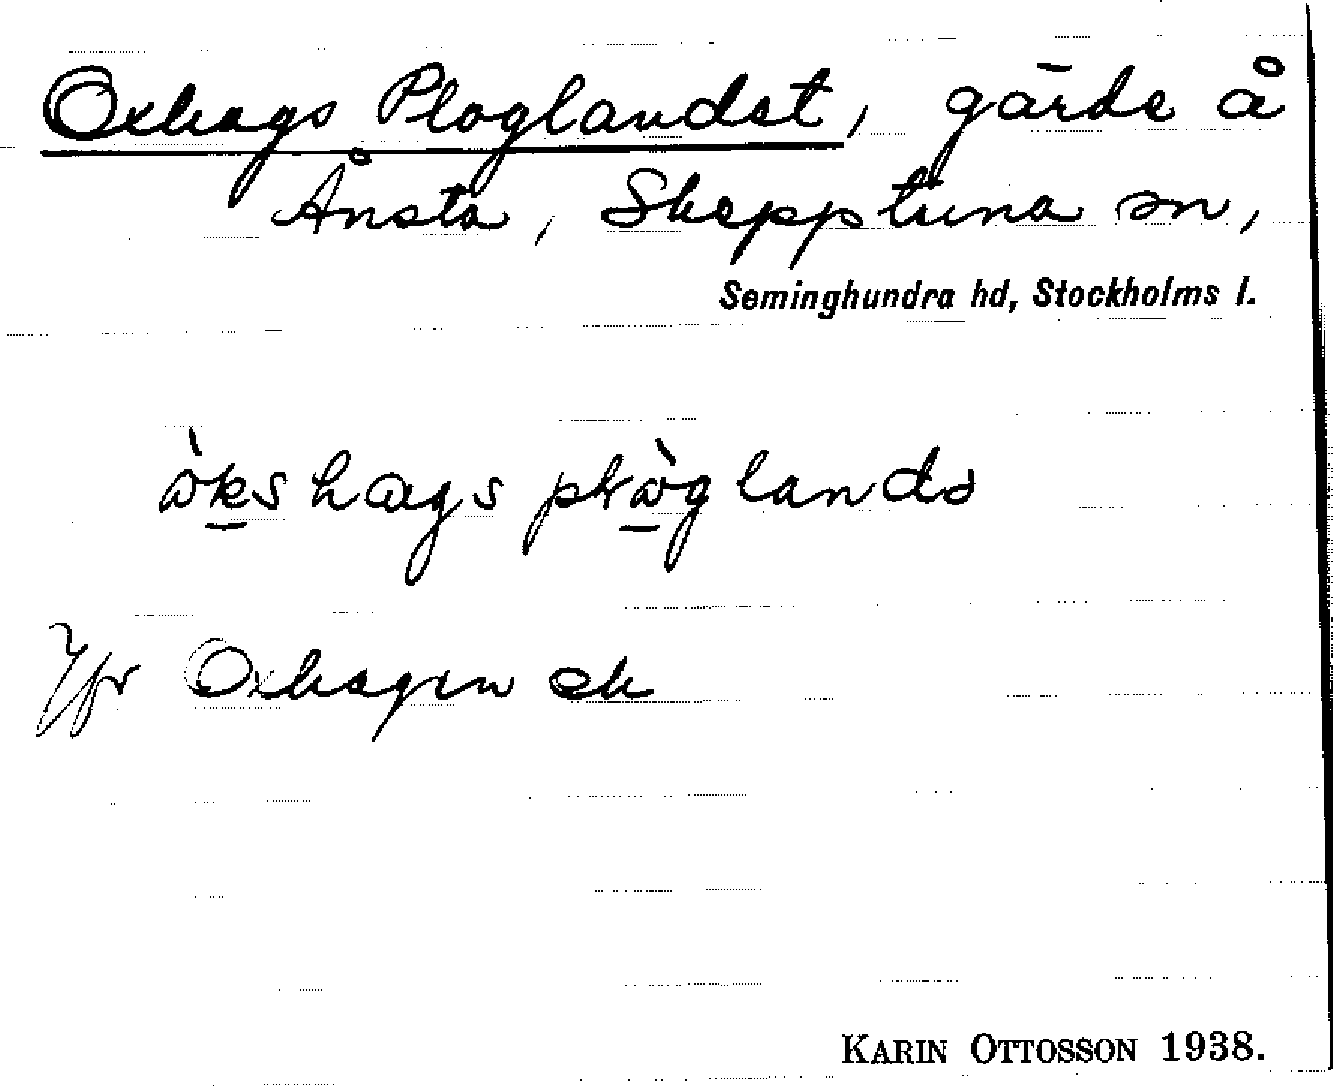 Oxhags Ploglandet, gärde å
Ånsta, Skepptuna sn,
Seminghundra hd, Stockholms l.
ò̀kshags plò̀glandə
Jfr Oxhagen ek
KARIN OTTOSSON 1938.